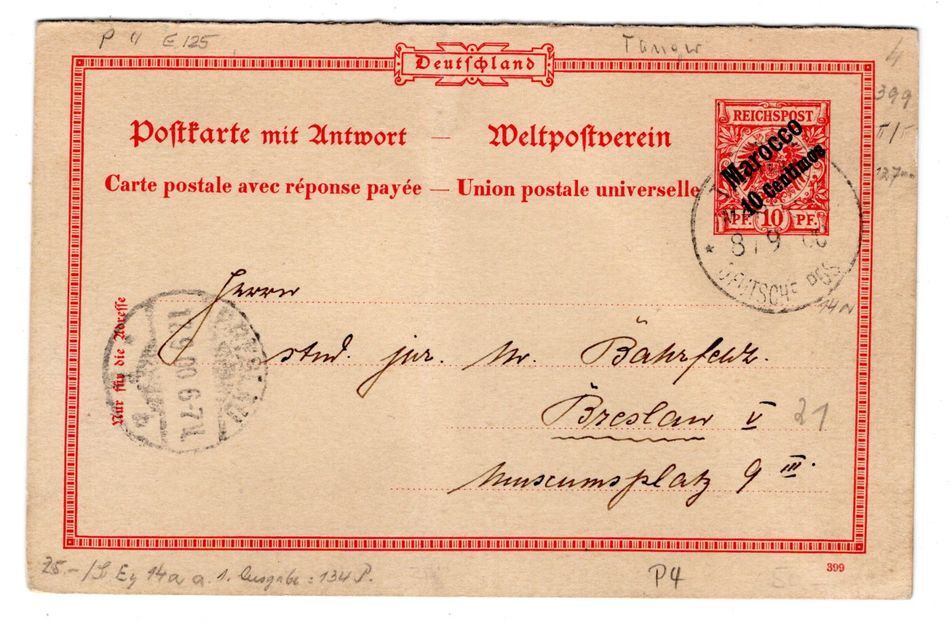 P 4 E.125
Tanger
4
Deutschland
399
Postkarte mit Antwort — Weltpostverein
Carte postale avec réponse payée — Union postale universelle
REICHSPOST
Marocco
10 Centimos
PF. 10 PF.
8 / 9 00
* DEUTSCHE POST
14 N
Nur für die Adresse
BRESLAU
9.00.6-7 N.
Herrn
stud. jur. W. Bahrfeldt.
Breslau V
21
Museumsplatz 9 III.
25.-/S Ey 14a a. 1. Ausgabe: 134 P.
P4
399